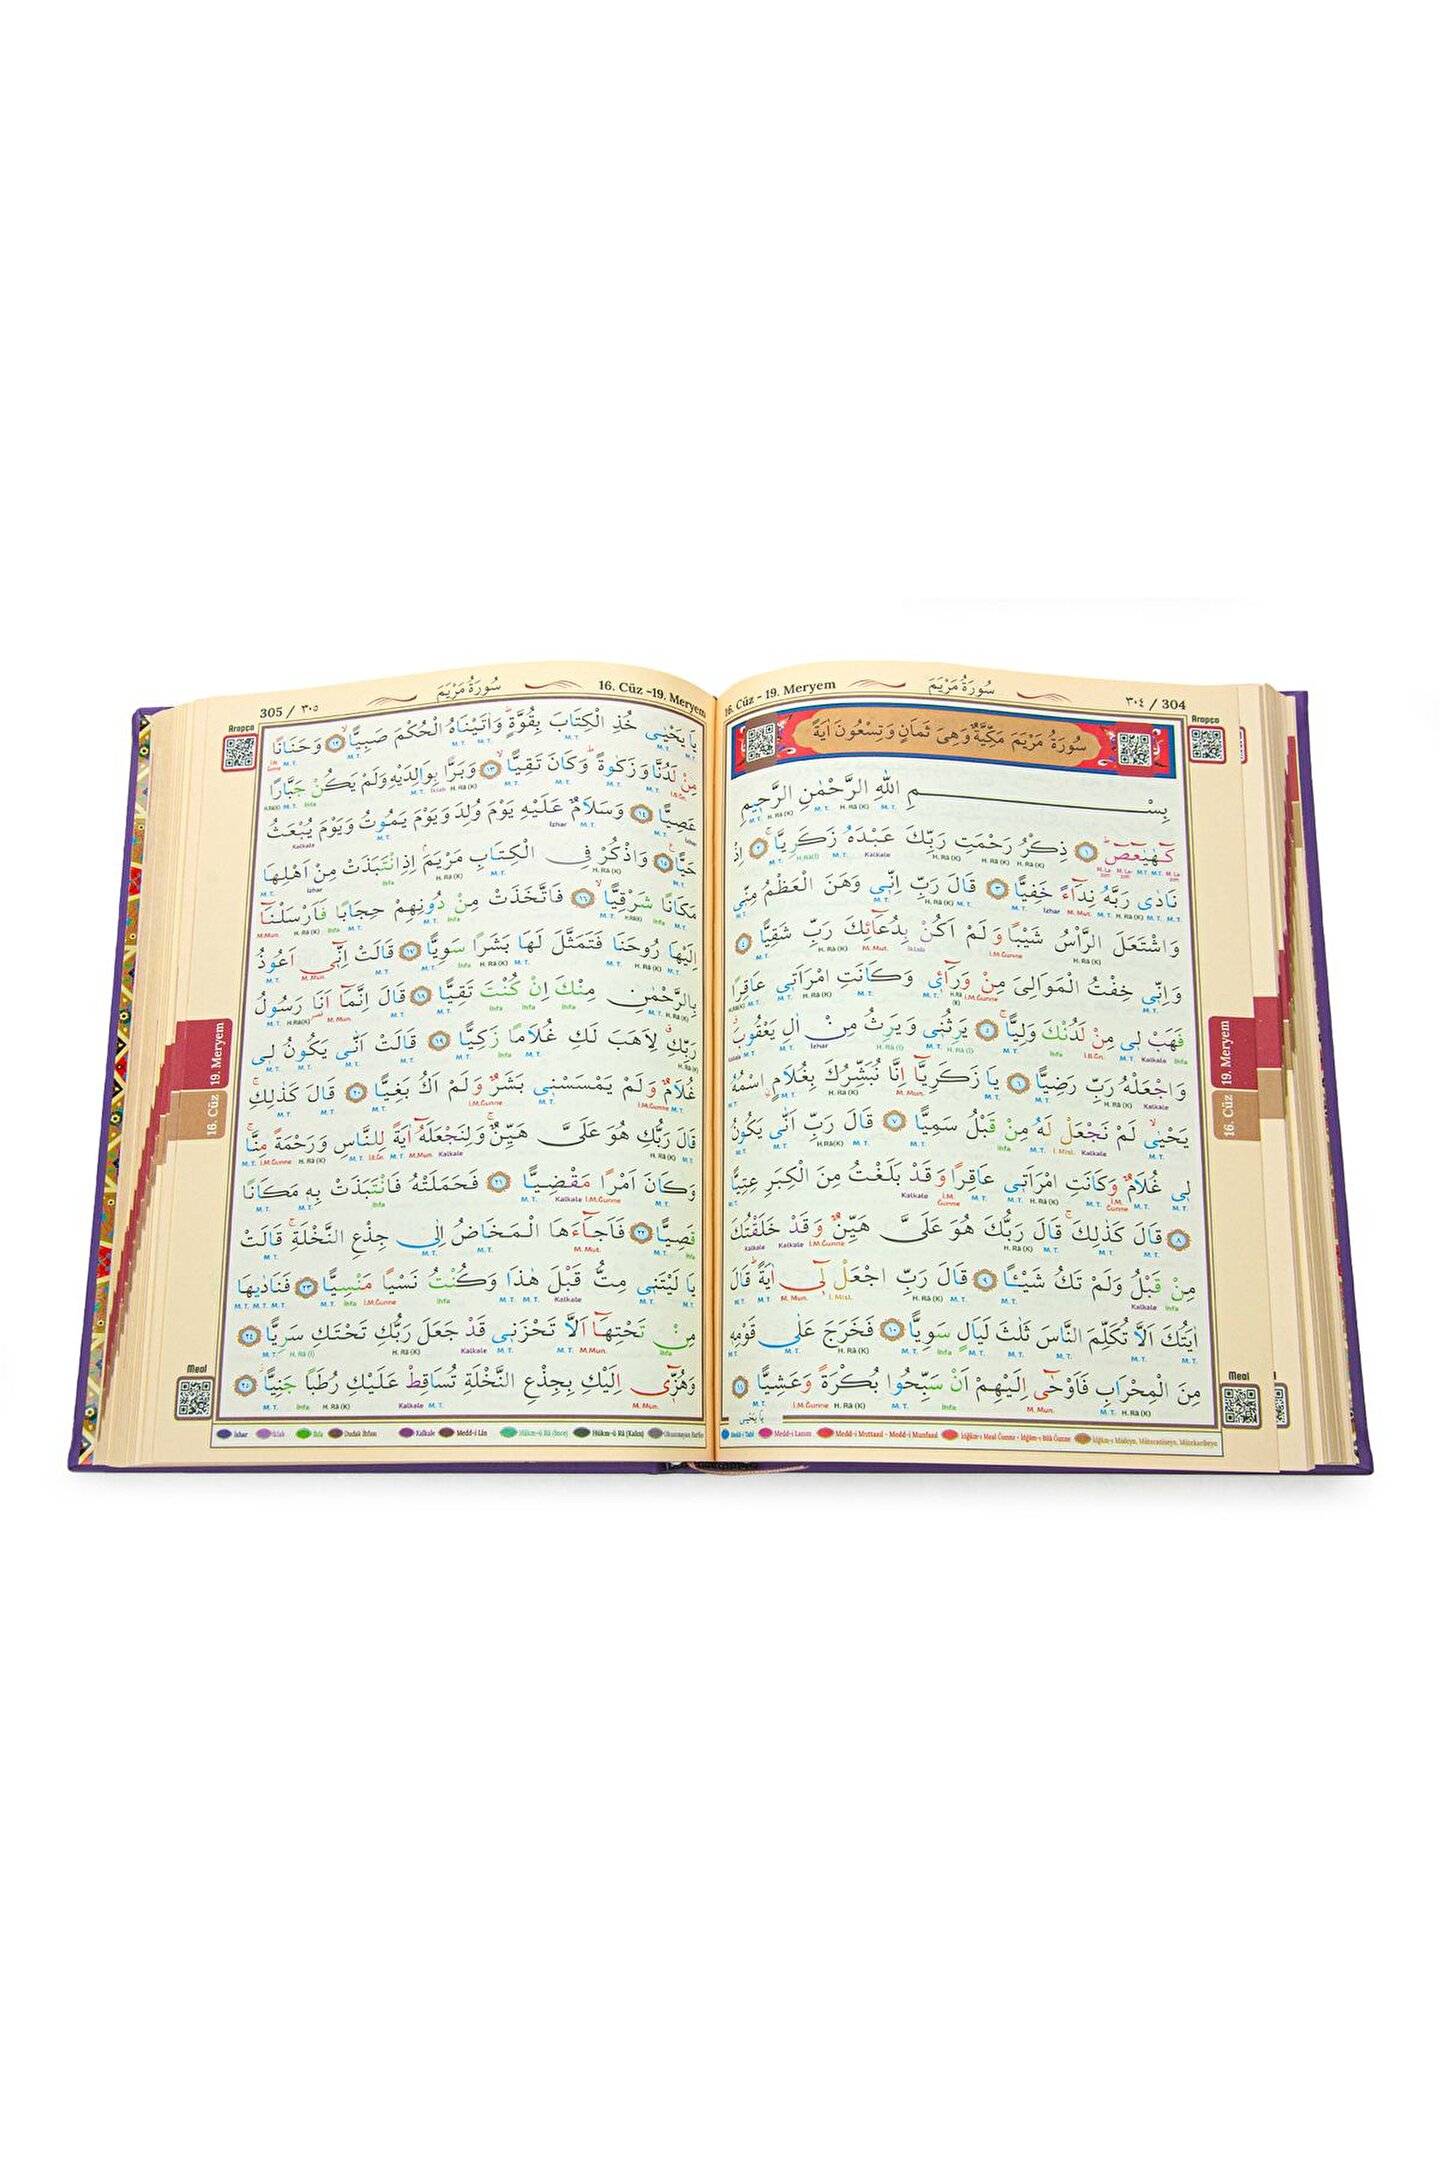 ٣٠٤ / 304
سُورَةُ مَرْيَمَ
16. Cüz - 19. Meryem
Arapça
سُورَةُ مَرْيَمَ مَكِّيَّةٌ وَهِيَ ثَمَانٍ وَتِسْعُونَ اٰيَةً
بِسْمِ اللّٰهِ الرَّحْمٰنِ الرَّحٖيمِ
كٓهٰيٰعٓصٓ ۜ ﴿١﴾ ذِكْرُ رَحْمَتِ رَبِّكَ عَبْدَهُ زَكَرِيَّا ۚ ﴿٢﴾ اِذْ
نَادٰى رَبَّهُ نِدَٓاءً خَفِيًّا ﴿٣﴾ قَالَ رَبِّ اِنّٖى وَهَنَ الْعَظْمُ مِنّٖى
وَاشْتَعَلَ الرَّأْسُ شَيْبًا وَلَمْ اَكُنْ بِدُعَٓائِكَ رَبِّ شَقِيًّا ﴿٤﴾
وَاِنّٖى خِفْتُ الْمَوَالِىَ مِنْ وَرَٓائٖى وَكَانَتِ امْرَاَتٖى عَاقِرًا
فَهَبْ لٖى مِنْ لَدُنْكَ وَلِيًّا ۙ ﴿٥﴾ يَرِثُنٖى وَيَرِثُ مِنْ اٰلِ يَعْقُوبَ ۗ
وَاجْعَلْهُ رَبِّ رَضِيًّا ﴿٦﴾ يَا زَكَرِيَّٓا اِنَّا نُبَشِّرُكَ بِغُلَامٍۨ اسْمُهُ
يَحْيٰى ۙ لَمْ نَجْعَلْ لَهُ مِنْ قَبْلُ سَمِيًّا ﴿٧﴾ قَالَ رَبِّ اَنّٰى يَكُونُ
لٖى غُلَامٌ وَكَانَتِ امْرَاَتٖى عَاقِرًا وَقَدْ بَلَغْتُ مِنَ الْكِبَرِ عِتِيًّا
﴿٨﴾ قَالَ كَذٰلِكَ ۚ قَالَ رَبُّكَ هُوَ عَلَىَّ هَيِّنٌ وَقَدْ خَلَقْتُكَ
مِنْ قَبْلُ وَلَمْ تَكُ شَيْـًٔا ﴿٩﴾ قَالَ رَبِّ اجْعَلْ لٖٓى اٰيَةً ۜ قَالَ
اٰيَتُكَ اَلَّا تُكَلِّمَ النَّاسَ ثَلٰثَ لَيَالٍ سَوِيًّا ﴿١٠﴾ فَخَرَجَ عَلٰى قَوْمِهٖ
مِنَ الْمِحْرَابِ فَاَوْحٰٓى اِلَيْهِمْ اَنْ سَبِّحُوا بُكْرَةً وَعَشِيًّا ﴿١١﴾
يَا يَحْيٰى
19. Meryem
16. Cüz
Meal
Medd-i Tabî
Medd-i Lazım
Medd-i Muttasıl - Medd-i Munfasıl
İdğâm-ı Meal Ğunne - İdğâm-ı Bilâ Ğunne
İdğâm-ı Misleyn, Mütecaniseyn, Mütekaribeyn
16. Cüz -19. Meryem
سُورَةُ مَرْيَمَ
305 / ٣٠٥
Arapça
يَا يَحْيٰى خُذِ الْكِتَابَ بِقُوَّةٍ ۜ وَاٰتَيْنَاهُ الْحُكْمَ صَبِيًّا ۙ ﴿١٢﴾ وَحَنَانًا
مِنْ لَدُنَّا وَزَكٰوةً ۜ وَكَانَ تَقِيًّا ۙ ﴿١٣﴾ وَبَرًّا بِوَالِدَيْهِ وَلَمْ يَكُنْ جَبَّارًا
عَصِيًّا ﴿١٤﴾ وَسَلَامٌ عَلَيْهِ يَوْمَ وُلِدَ وَيَوْمَ يَمُوتُ وَيَوْمَ يُبْعَثُ
حَيًّا ﴿١٥﴾ وَاذْكُرْ فِى الْكِتَابِ مَرْيَمَ ۢ اِذِ انْتَبَذَتْ مِنْ اَهْلِهَا
مَكَانًا شَرْقِيًّا ۙ ﴿١٦﴾ فَاتَّخَذَتْ مِنْ دُونِهِمْ حِجَابًا فَاَرْسَلْنَٓا
اِلَيْهَا رُوحَنَا فَتَمَثَّلَ لَهَا بَشَرًا سَوِيًّا ﴿١٧﴾ قَالَتْ اِنّٖٓى اَعُوذُ
بِالرَّحْمٰنِ مِنْكَ اِنْ كُنْتَ تَقِيًّا ﴿١٨﴾ قَالَ اِنَّمَٓا اَنَا رَسُولُ
رَبِّكِ لِاَهَبَ لَكِ غُلَامًا زَكِيًّا ﴿١٩﴾ قَالَتْ اَنّٰى يَكُونُ لٖى
غُلَامٌ وَلَمْ يَمْسَسْنٖى بَشَرٌ وَلَمْ اَكُ بَغِيًّا ﴿٢٠﴾ قَالَ كَذٰلِكِ ۚ
قَالَ رَبُّكِ هُوَ عَلَىَّ هَيِّنٌ ۚ وَلِنَجْعَلَهُٓ اٰيَةً لِلنَّاسِ وَرَحْمَةً مِنَّا ۚ
وَكَانَ اَمْرًا مَقْضِيًّا ﴿٢١﴾ فَحَمَلَتْهُ فَانْتَبَذَتْ بِهٖ مَكَانًا
قَصِيًّا ﴿٢٢﴾ فَاَجَٓاءَهَا الْمَخَاضُ اِلٰى جِذْعِ النَّخْلَةِ ۚ قَالَتْ
يَا لَيْتَنٖى مِتُّ قَبْلَ هٰذَا وَكُنْتُ نَسْيًا مَنْسِيًّا ﴿٢٣﴾ فَنَادٰيهَا
مِنْ تَحْتِهَٓا اَلَّا تَحْزَنٖى قَدْ جَعَلَ رَبُّكِ تَحْتَكِ سَرِيًّا ﴿٢٤﴾
وَهُزّٖٓى اِلَيْكِ بِجِذْعِ النَّخْلَةِ تُسَاقِطْ عَلَيْكِ رُطَبًا جَنِيًّا ۘ ﴿٢٥﴾
19. Meryem
16. Cüz
Meal
İzhar
İklab
İhfa
Dudak İhfası
Kalkale
Medd-i Lin
Hükm-ü Râ (İnce)
Hükm-ü Râ (Kalın)
Okunmayan Harfler